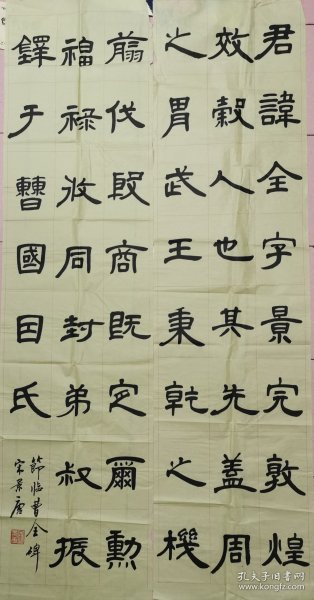 君諱全字景完敦煌
效穀人也其先蓋周
之胄武王秉乾之機
翦伐殷商既定爾勳
福祿攸同封弟叔振
鐸于曹國因氏
節临曹全碑
宋景
孔夫子旧书网